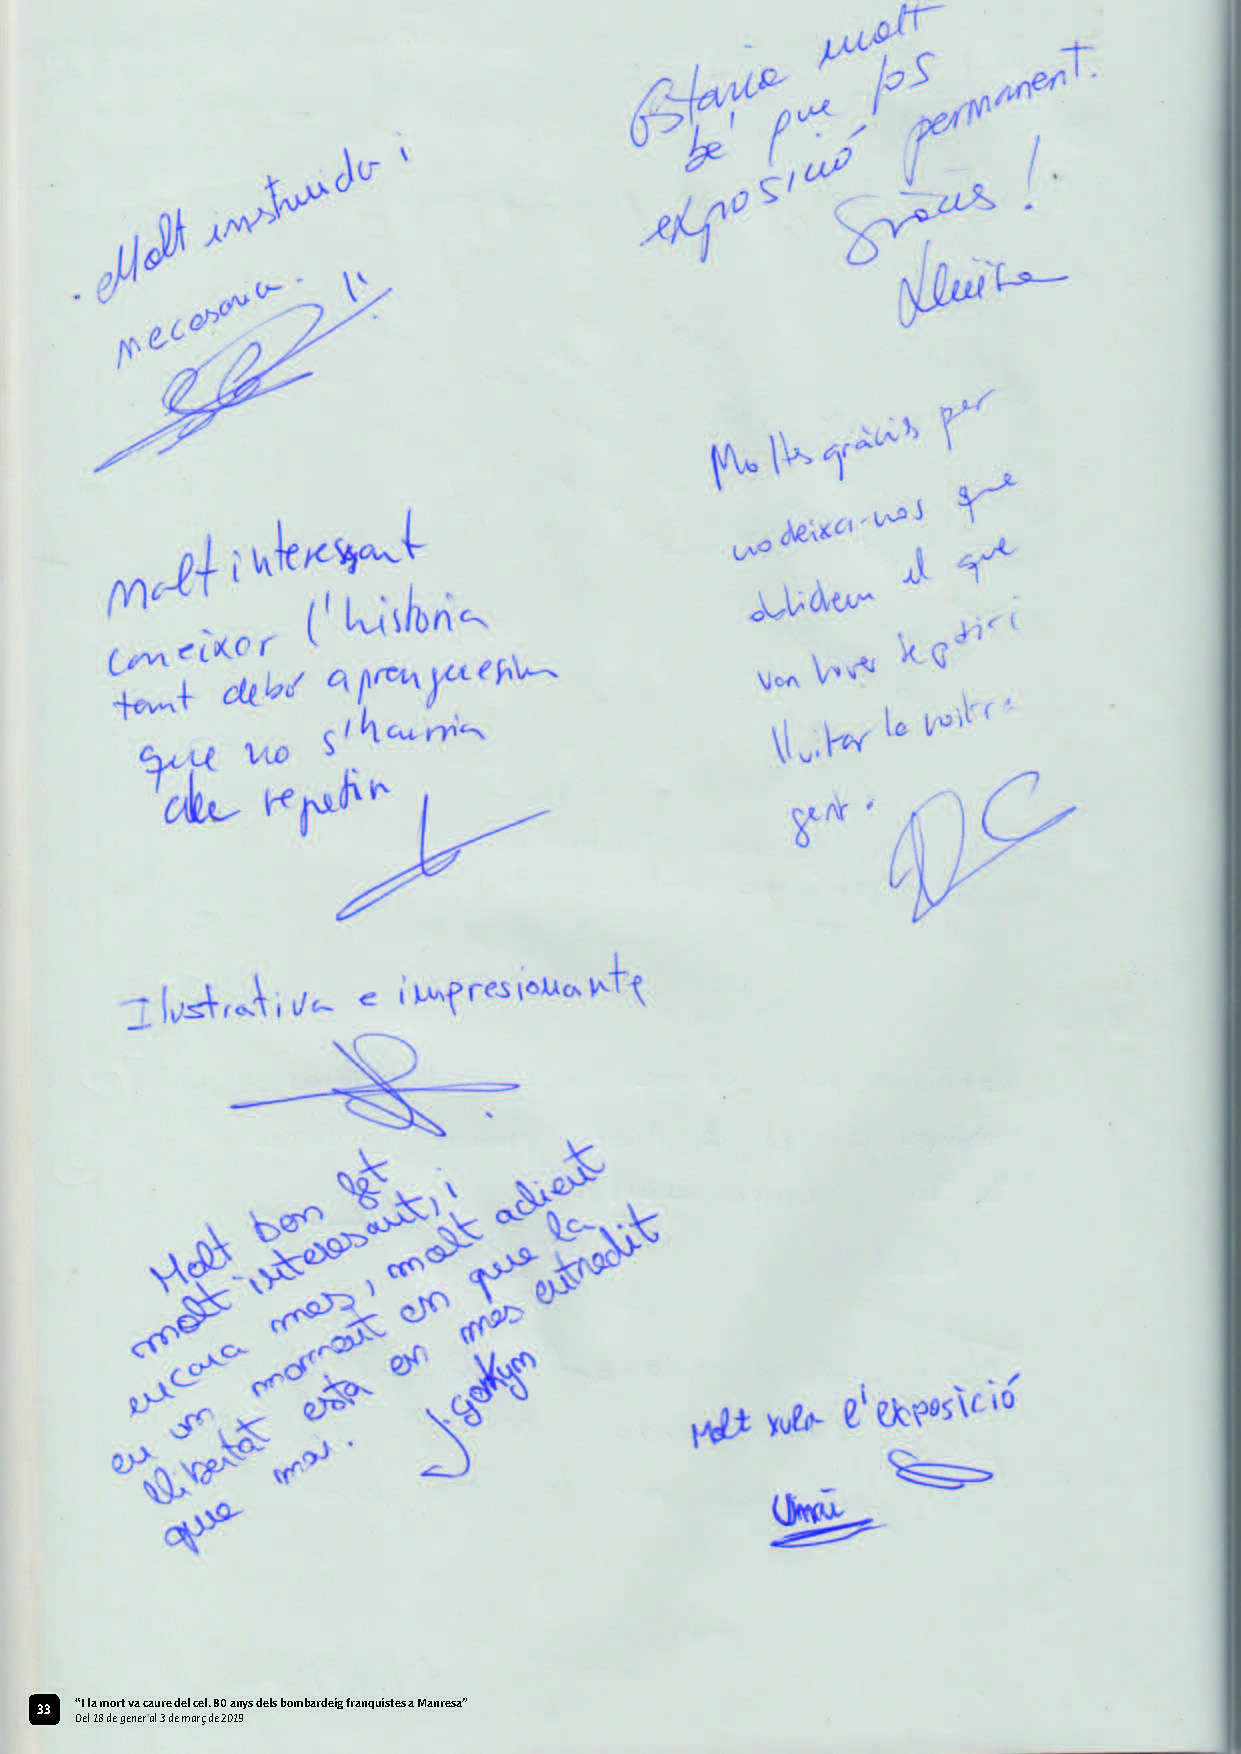 Estaria molt
bé que fos
exposició permanent.
Gràcis!
Lluïsa
. Molt instruida i
necesaria.
Moltes gràcis per
no deixa-nos que
oblidem el que
van haver de patir i
lluitar la nostra
gent.
DC
Molt interessant
coneixer l'historia
tant debó aprenguesim
que no s'hauria
de repetir
Ilustrativa e impresionante
Molt bon fet
molt interesant, i
encara mes, molt adient
en un moment en que la
llibertat está en mes entredit
que mai.
Molt xula l'exposició
33
“I la mort va caure del cel. 80 anys dels bombardeig franquistes a Manresa”
Del 18 de gener al 3 de març de 2019